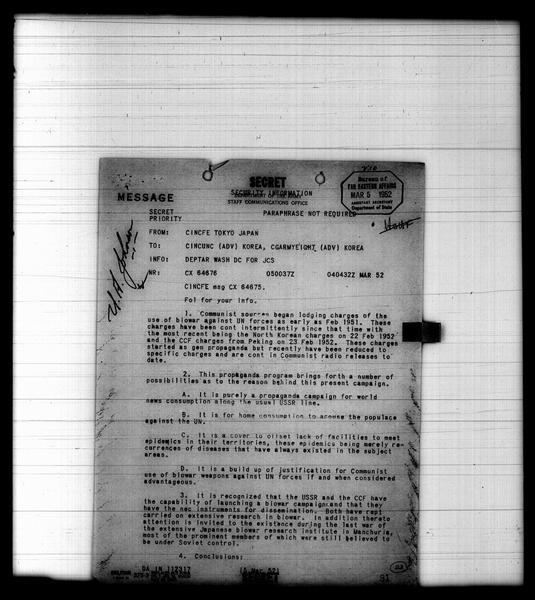 SECRET
SECURITY INFORMATION
STAFF COMMUNICATIONS OFFICE
MESSAGE
Bureau of
FAR EASTERN AFFAIRS
MAR 5 1952
ASSISTANT SECRETARY
Department of State
SECRET
PRIORITY
PARAPHRASE NOT REQUIRED
FROM: CINCFE TOKYO JAPAN
TO: CINCUNC (ADV) KOREA, CGARMYEIGHT (ADV) KOREA
INFO: DEPTAR WASH DC FOR JCS
NR: CX 64676 050037Z 040432Z MAR 52
CINCFE msg CX 64675.
Fol for your info.
1. Communist sources began lodging charges of the
use of biowar against UN forces as early as Feb 1951. These
charges have been cont intermittently since that time with
the most recent being the North Korean charges on 22 Feb 1952
and the CCF charges from Peking on 23 Feb 1952. These charges
started as gen propaganda but recently have been reduced to
specific charges and are cont in Communist radio releases to
date.
2. This propaganda program brings forth a number of
possibilities as to the reason behind this present campaign.
A. It is purely a propaganda campaign for world
news consumption along the usual USSR line.
B. It is for home consumption to arouse the populace
against the UN.
C. It is a cover to offset lack of facilities to meet
epidemics in their territories, these epidemics being merely re-
currences of diseases that have always existed in the subject
areas.
D. It is a build up of justification for Communist
use of biowar weapons against UN forces if and when considered
advantageous.
3. It is recognized that the USSR and the CCF have
the capability of launching a biowar campaign and that they
have the nec instruments for dissemination. Both have rept
carried on extensive research in biowar. In addition thereto
attention is invited to the existence during the last war of
the extensive Japanese biowar research institute in Manchuria,
most of the prominent members of which were still believed to
be under Soviet control.
4. Conclusions:
DA IN 112317 (5 Mar 52)
SECRET
91